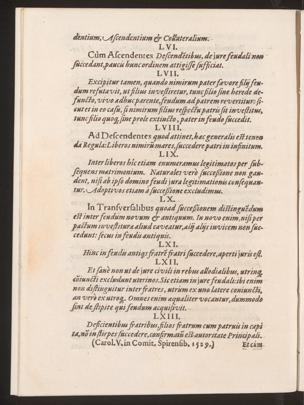 dentium, Ascendentium & Collateralium.
LVI.
Cùm Ascendentes Descendẽtibus, de jure feudali non
succedant, pauci hunc ordinem attigisse sufficiat.
LVII.
Excipitur tamen, quando nimirum pater favore filij feu-
dum refutavit, ut filius investiretur, tunc filio sine herede de-
functo, vivo adhuc parente, feudum ad patrem revertitur: si-
cut et in eo casu, si nimirum filius respectu patris sit investitus,
tunc filio quoq, sine prole extincto, pater in feudo succedit.
LVIII.
Ad Descendentes quod attinet, hæc generalis est tenen
da Regula: Liberos nimirũ mares, succedere patri in infinitum.
LIX.
Inter liberos hîc etiam enumeramus legitimatos per sub-
sequens matrimonium. Naturales verò successione non gau-
dent, nisi ab ipso domino feudi jura legitimationis consequan-
tur. Adoptivos etiam à successione excludimus.
LX.
In Transversalibus quoad successionem distinguẽdum
est inter feudum novum & antiquum. In novo enim, nisi per
pactum investitura aliud caveatur, alij alijs invicem non suc-
cedunt: secus in feudis antiquis.
LXI.
Hinc in feudis antiqs fratrẽ fratri succedere, aperti juris est.
LXII.
Et sanè non ut de jure civili in rebus allodialibus, utrinq,
cõiuncti excludunt uterinos: Sic etiam in jure feudali: ibi enim
non distinguitur inter fratres, utrùm ex uno latere coniuncti,
an verò ex utroq. Omnes enim æqualiter vocantur, dummodo
sint de stipite qui feudum acquisivit.
LXIII.
Deficientibus fratribus, filios fratrum cum patruis in capi
ta, nõ in stirpes succedere, confirmatũ est autoritate Principali.
(Carol. V. in Comit. Spirensib. 1529.)
Etiam